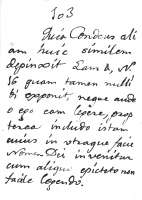 103
Quia Condeus ali
am huic similem
depinxit Tam. 2, N.
16 quam tamen nulli
bi exponit, neque audo
o ego cum legere, prop
terea includo istam
cuius in utraque facie
Nomen Dei invenitur
cum aliqui epicteto non
facile legendo.